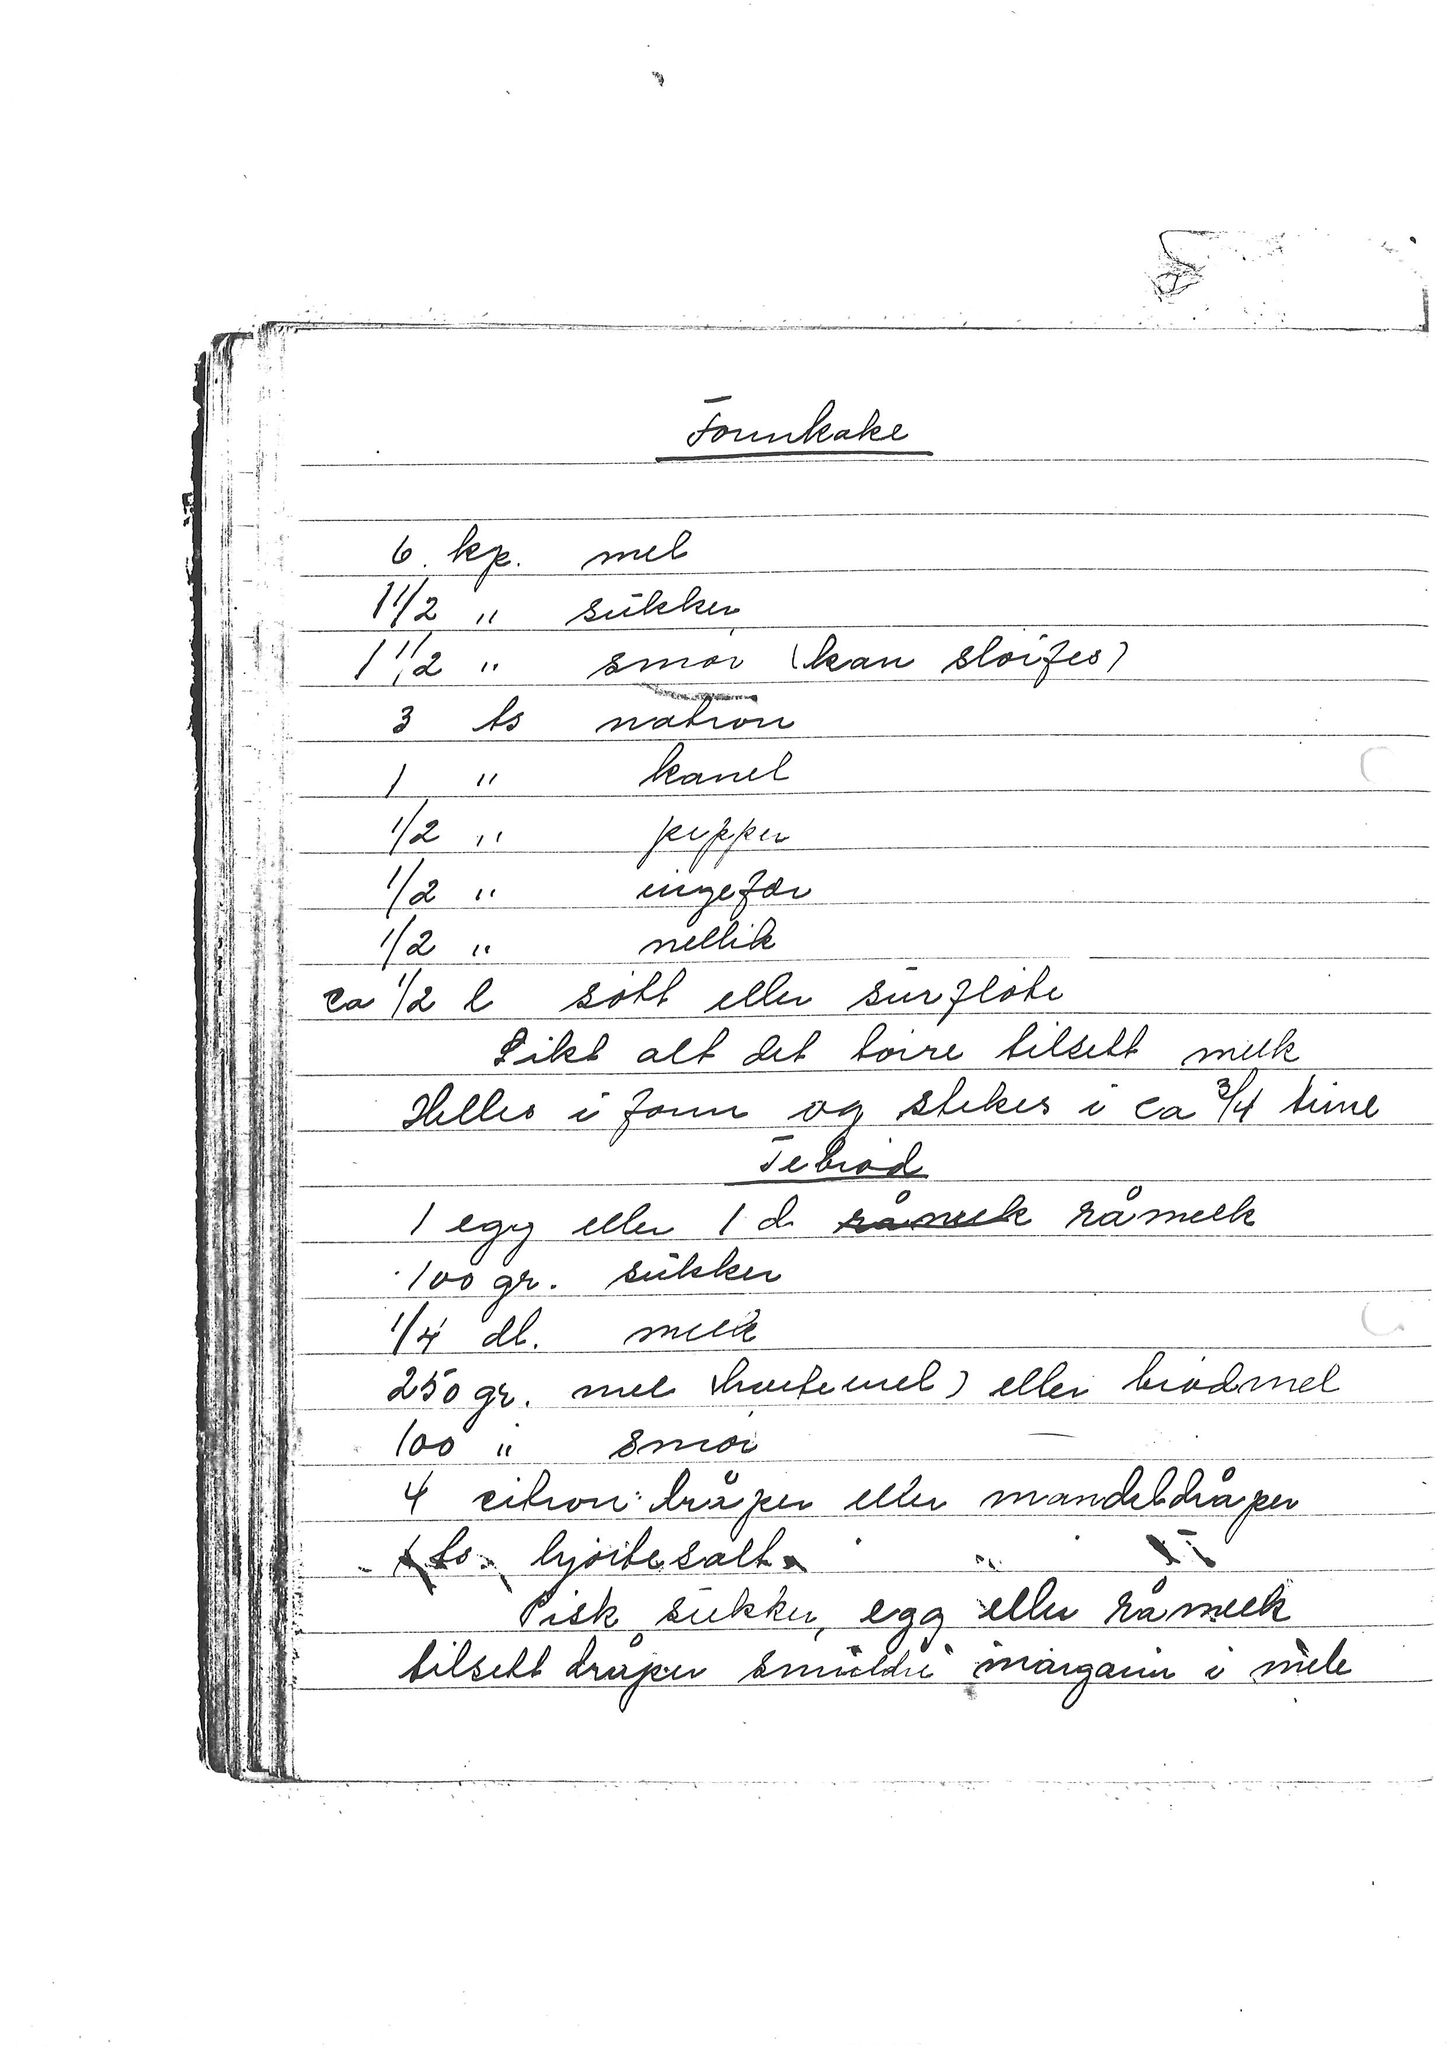 Formkake
6. kp. mel
1 1/2 " sukker
1 1/2 " smør (kan sløifes)
3 ts natron
1 " kanel
1/2 " pepper
1/2 " ingefær
1/2 " nellik
ca 1/2 l søtt eller surfløte
Sikt alt det tørre tilsett melk
Helles i form og stekes i ca 3/4 time
Tebrød
1 egg eller 1 d råmelk råmelk
100 gr. sukker
1/4 dl. melk
250 gr. mel (hvetemel) eller brødmel
100 " smør
4 citron dråper eller mandeldråper
1 ts hjortesalt
Pisk sukker, egg eller råmelk
tilsett dråper smuldre margarin i mele